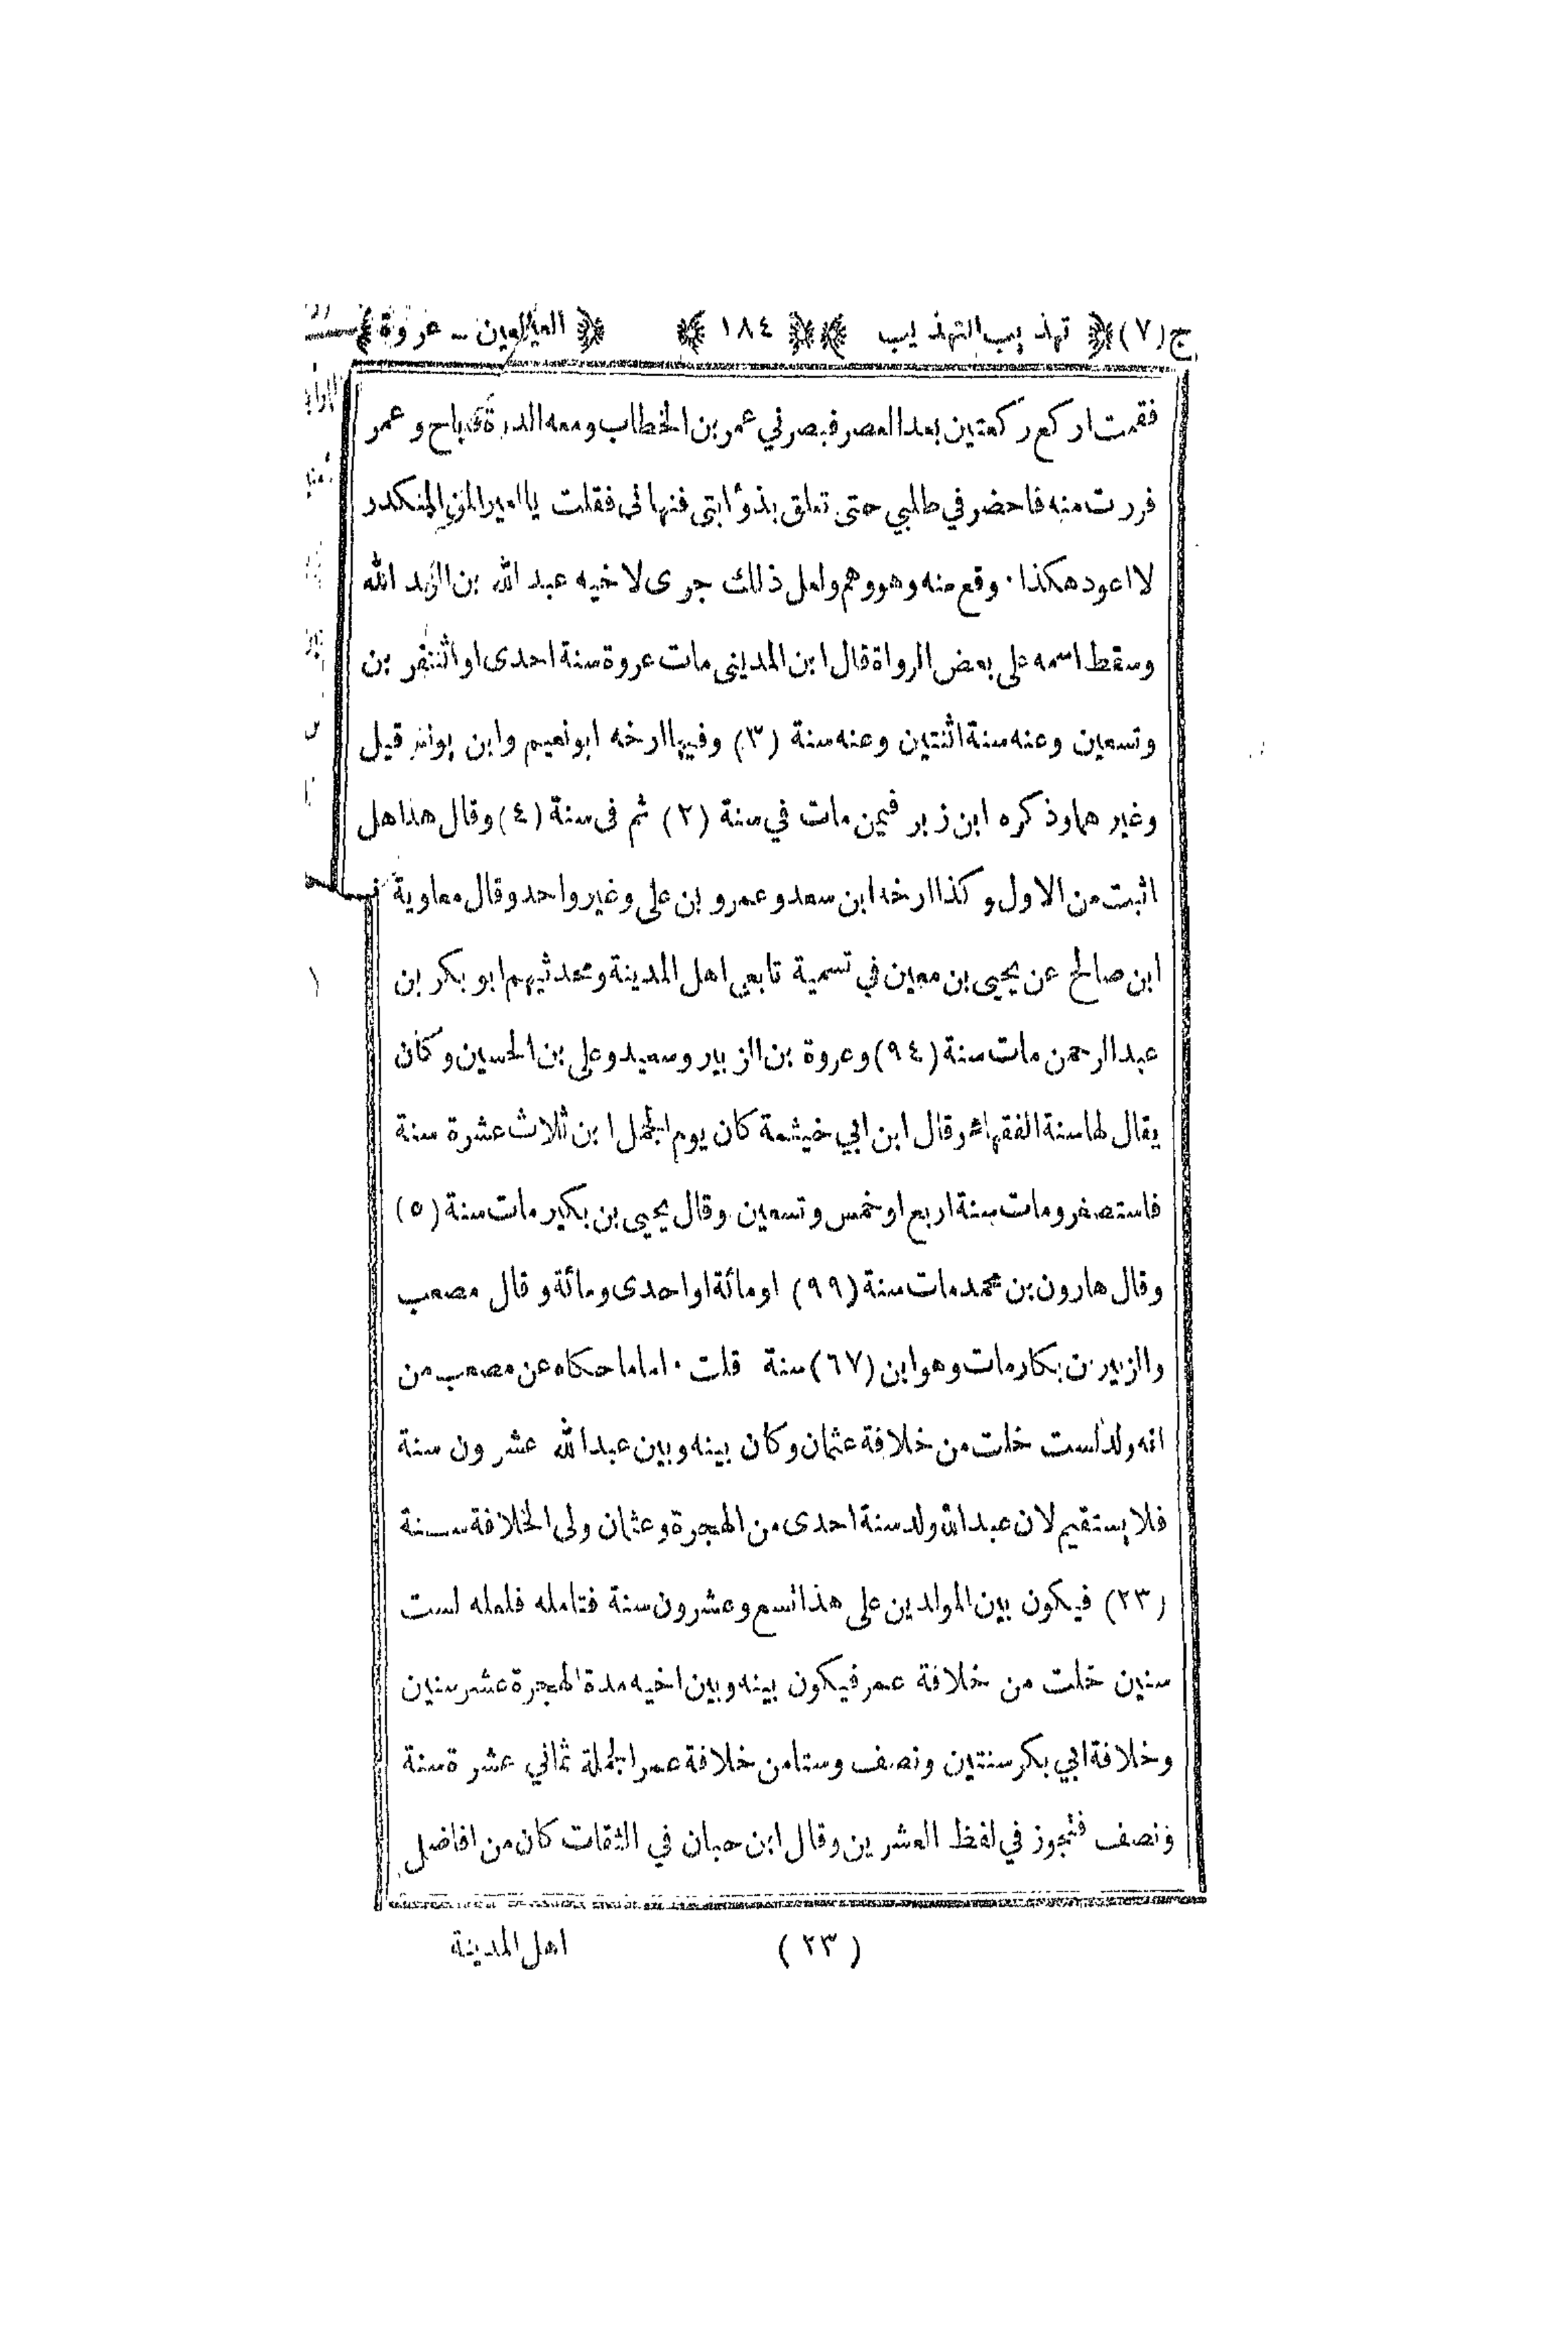 ج (٧) ﴿ تهذيب التهذيب ﴾ ﴿ ١٨٤ ﴾ ﴿ العين - عروة ﴾
فقمت اركع ركعتين بعد العصر فبصر في عمر بن الخطاب ومعه الدرة وعمر
فررت منه فاحضر في طلبي حتى تعلق بذؤابتي فنهاني فقلت يا امير المنكدر
لا اعود هكذا · وقع منه وهو وهم ولعل ذلك جرى لاخيه عبد الله بن الله
وسقط اسمه على بعض الرواة قال ابن المديني مات عروة سنة احدى او بن
وتسعين وعنه سنة اثنتين وعنه سنة (٣) وفيها ارخه ابو نعيم وابن يونس قيل
وغيرهما وذكره ابن زبر فيمن مات في سنة (٢) ثم في سنة (٤) وقال هذا هل
اثبت من الاول وكذا ارخه ابن سعد وعمرو بن علي وغير واحد وقال معاوية
ابن صالح عن يحيى بن معين في تسمية تابعي اهل المدينة ومحدثيهم ابو بكر بن
عبد الرحمن مات سنة (٩٤) وعروة بن الزبير وسعيد وعلي بن الحسين وكان
يقال لها سنة الفقهاء وقال ابن ابي خيثمة كان يوم الجمل ابن ثلاث عشرة سنة
فاستصغر ومات سنة اربع او خمس وتسعين وقال يحيى بن بكير مات سنة (٥)
وقال هارون بن محمد مات سنة (٩٩) او مائة او احدى ومائة وقال مصعب
والزبير بن بكار مات وهو ابن (٦٧) سنة قلت · اما ما حكاه عن مصعب من
انه ولد لست خلت من خلافة عثمان وكان بينه وبين عبد الله عشرون سنة
فلا يستقيم لان عبد الله ولد سنة احدى من الهجرة وعثمان ولى الخلافة سنة
(٢٣) فيكون بين المولدين على هذا تسع وعشرون سنة فتامله فلعله لست
سنين خلت من خلافة عمر فيكون بينه وبين اخيه مدة الهجرة عشر سنين
وخلافة ابي بكر سنتين ونصف وستا من خلافة عمر الجملة ثماني عشرة سنة
ونصف فتجوز في لفظ العشرين وقال ابن حبان في الثقات كان من افاضل
(٢٣) اهل المدينة